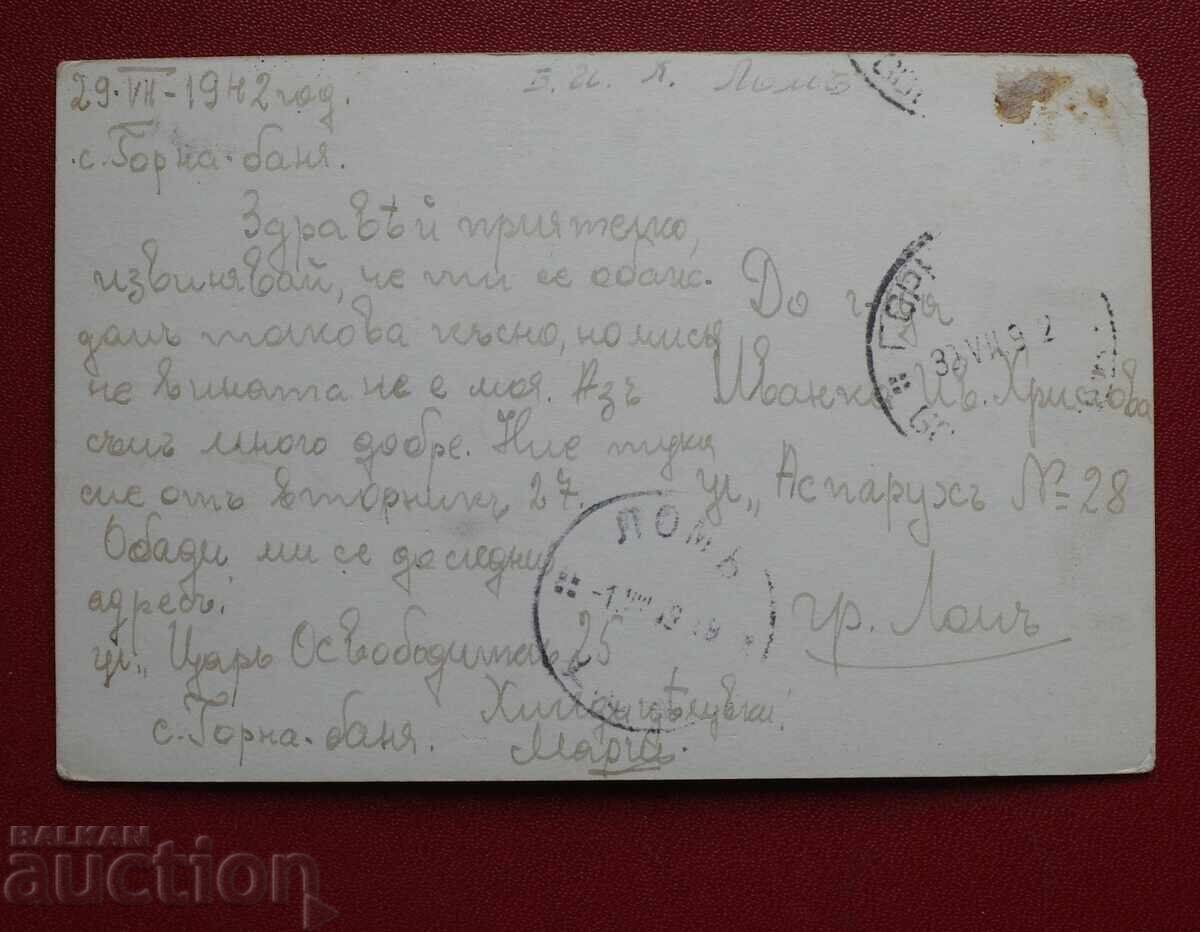 29.VII-1942 год.
с. Горна-баня.
Здравѣй приятелко,
извинявай, че ти се обаж-
дамъ толкова късно, но мисля
че вината не е моя. Азъ
съмъ много добре. Ние тука
сме отъ вторникъ 27.
Обади ми се
адресъ:
ул. „Царь Освободитель 25
с. Горна-баня.
Марча.
Ломъ
До г-ца
Иванка Ив. Христова
ул „Аспарухъ № 28
гр. Ломъ
ЛОМЪ
BALKAN
auction